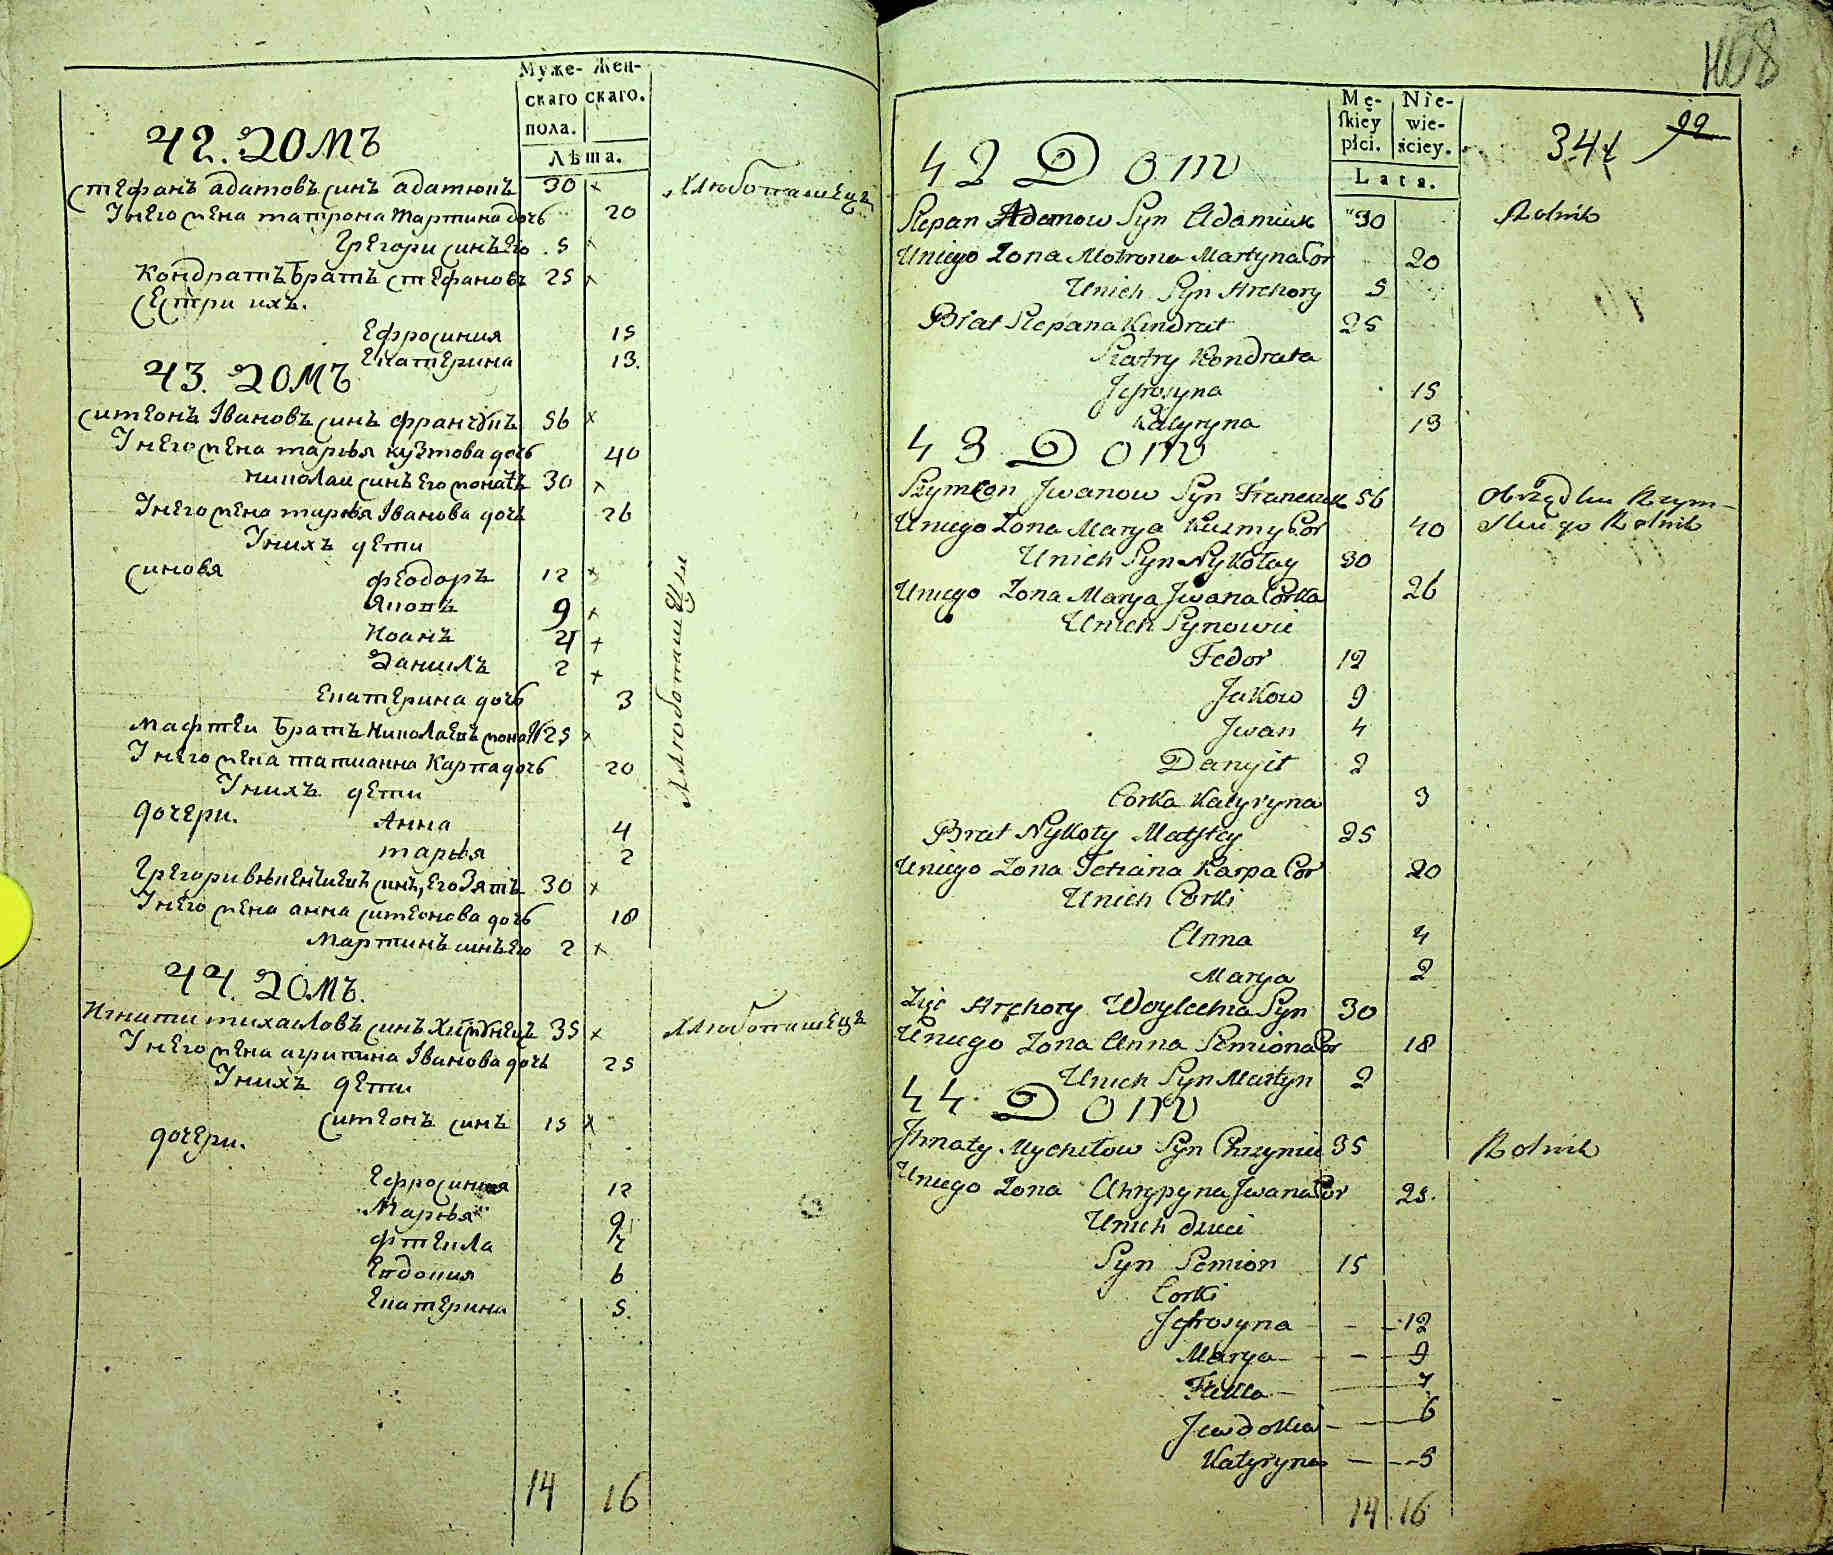 Муже- Жен-
скаго скаго.
пола.
Лѣта.
42. ДОМЪ
Стефанъ адамовъ синъ адамюкъ 30 х Хлѣбопашецъ
У него жена матрона мартина дочь 20
Грегори синъ Его 5 х
Кондратъ братъ Стефановъ 25 х
Сестри ихъ.
Ефросиния 15
Екатерина 13.
43. ДОМЪ
Симеонъ Івановъ синъ францукъ 56 х
У него жена марья кузмова дочь 40
николаи синъ Его женатъ 30 х
У него жена марья Іванова дочь 26
У нихъ дети
синовя феодоръ 12 х
Яковъ 9 х
Иоанъ 4 х
Данилъ 2 х
Екатерина дочь 3
Хлѣбопашцы
Мафтеи братъ Николаевъ женатъ 25 х
У него жена татианна Карпа дочь 20
У нихъ дети
дочери. Анна 4
марья 2
Грегори синъ, Его Зять 30 х
У него жена анна симеонова дочь 18
Мартинъ синъ Его 2 х
44. ДОМЪ.
Игнати михаиловъ синъ 35 х Хлѣбопашецъ
У него жена агрипина Іванова дочь 25
У нихъ дети
Симеонъ синъ 15 х
дочери.
Ефросиния 12
Марья 9
фтекла 7
Евдокия 6
Екатерина 5.
14 16
108
Mę- Nie-
skiey wie-
płci. ściey.
Lata.
344 99
42 Dom
Stepan Adamow Syn Adamiuk 30 Rolnik
Uniego Zona Motrona Martyna Cor 20
Unich Syn Hrehory 5
Brat Stepana Kindrat 25
Siostry Kondrata
Jefrosyna 15
Katyryna 13
43 Dom
Szymeon Jwanow Syn Franczuk 56 Obrządku Rzym-
Uniego Zona Marya Kuzmy Cor 40 skiego Rolnik
Unich Syn Nykołay 30
Uniego Zona Marya Jwana Corka 26
Unich Synowie
Fedor 12
Jakow 9
Jwan 4
Danyił 2
Corka Katyryna 3
Brat Nykoły Maftey 25
Uniego Zona Tetiana Karpa Cor 20
Unich Corki
Anna 4
Marya 2
Zięć Hrehory Woyciecha Syn 30
Uniego Zona Anna Semiona Cor 18
Unich Syn Martyn 2
44 Dom
Jhnaty Mychiłow Syn 35 Rolnik
Uniego Zona Ahrypyna Jwana Cor 25.
Unich dzieci
Syn Semion 15
Corki
Jefrosyna - - 12
Marya - - 9
Tekla - 7
Jewdokia - 6
Katyryna - - 5
14 16